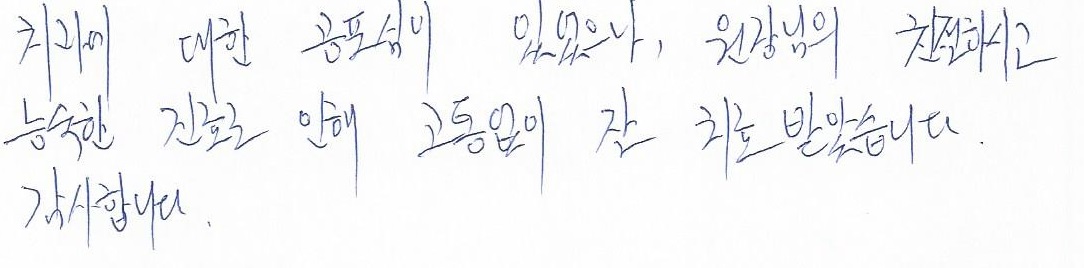 치과에 대한 공포심이 있었으나, 원장님의 친절하시고
능숙한 진료로 인해 고통없이 잘 치료 받았습니다.
감사합니다.